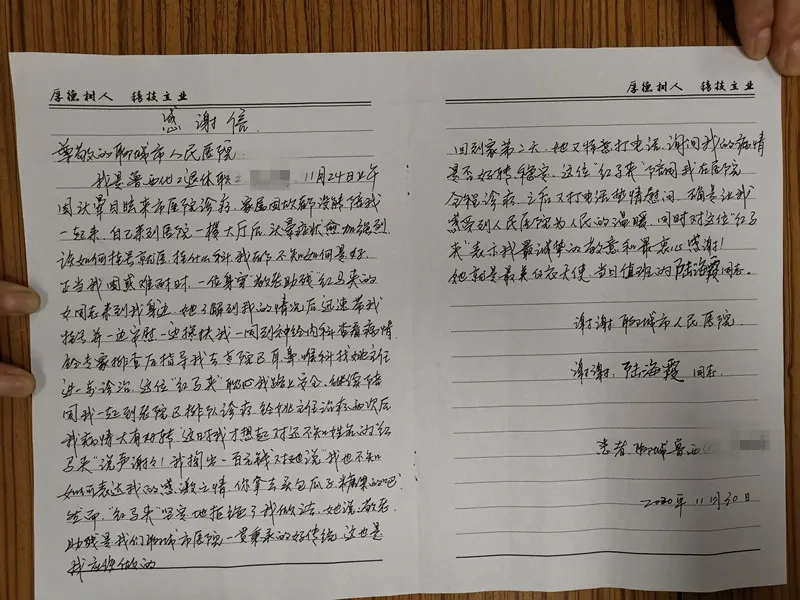 厚德树人 精技立业
感谢信
尊敬的聊城市人民医院
我是鲁西化工退休职工 11月24日上午
因头晕目眩来市医院诊疗,家属因故都没能陪我
一起来,自己来到医院一楼大厅后,头晕症状愈加
该如何挂号就医,挂什么科,我都不知如何是好。
正当我困惑难耐时,一位身穿"敬老助残"红马夹的
女同志来到我身边,她了解到我的情况后迅速带我
挂号并一边安慰一边搀扶我一同到神经内科查看病情
经专家排查后指导我去东院区耳鼻喉科找 主任
进一步诊治,这位"红马夹"担心我路上安全,继续陪
同我一起到东院区排队诊疗,经 主任治疗两次后
我病情大有好转,这时我才想起对还不知姓名的"红
马夹"说声谢谢!我掏出一百元钱对她说"我也不知
如何表达我的感激之情,你拿去买包瓜子糖果的吧"
然而,"红马夹"坚定地拒绝了我做法,她说,敬老
助残是我们聊城市医院一贯秉承的好传统,这也是
我应该做的
厚德树人 精技立业
回到家第二天,她又特意打电话,询问我的病情
是否好转稳定,这位"红马夹"陪同我在医院
全程诊疗,之后又打电话热情慰问,确是让我
感受到人民医院为人民的温暖,同时对这位"红马
夹"表示我最诚挚的敬意和最衷心感谢!
她就是最美白衣天使,当日值班的陆海霞同志。
谢谢聊城市人民医院
谢谢,陆海霞同志.
患者,聊城鲁西化
2020年11月30日